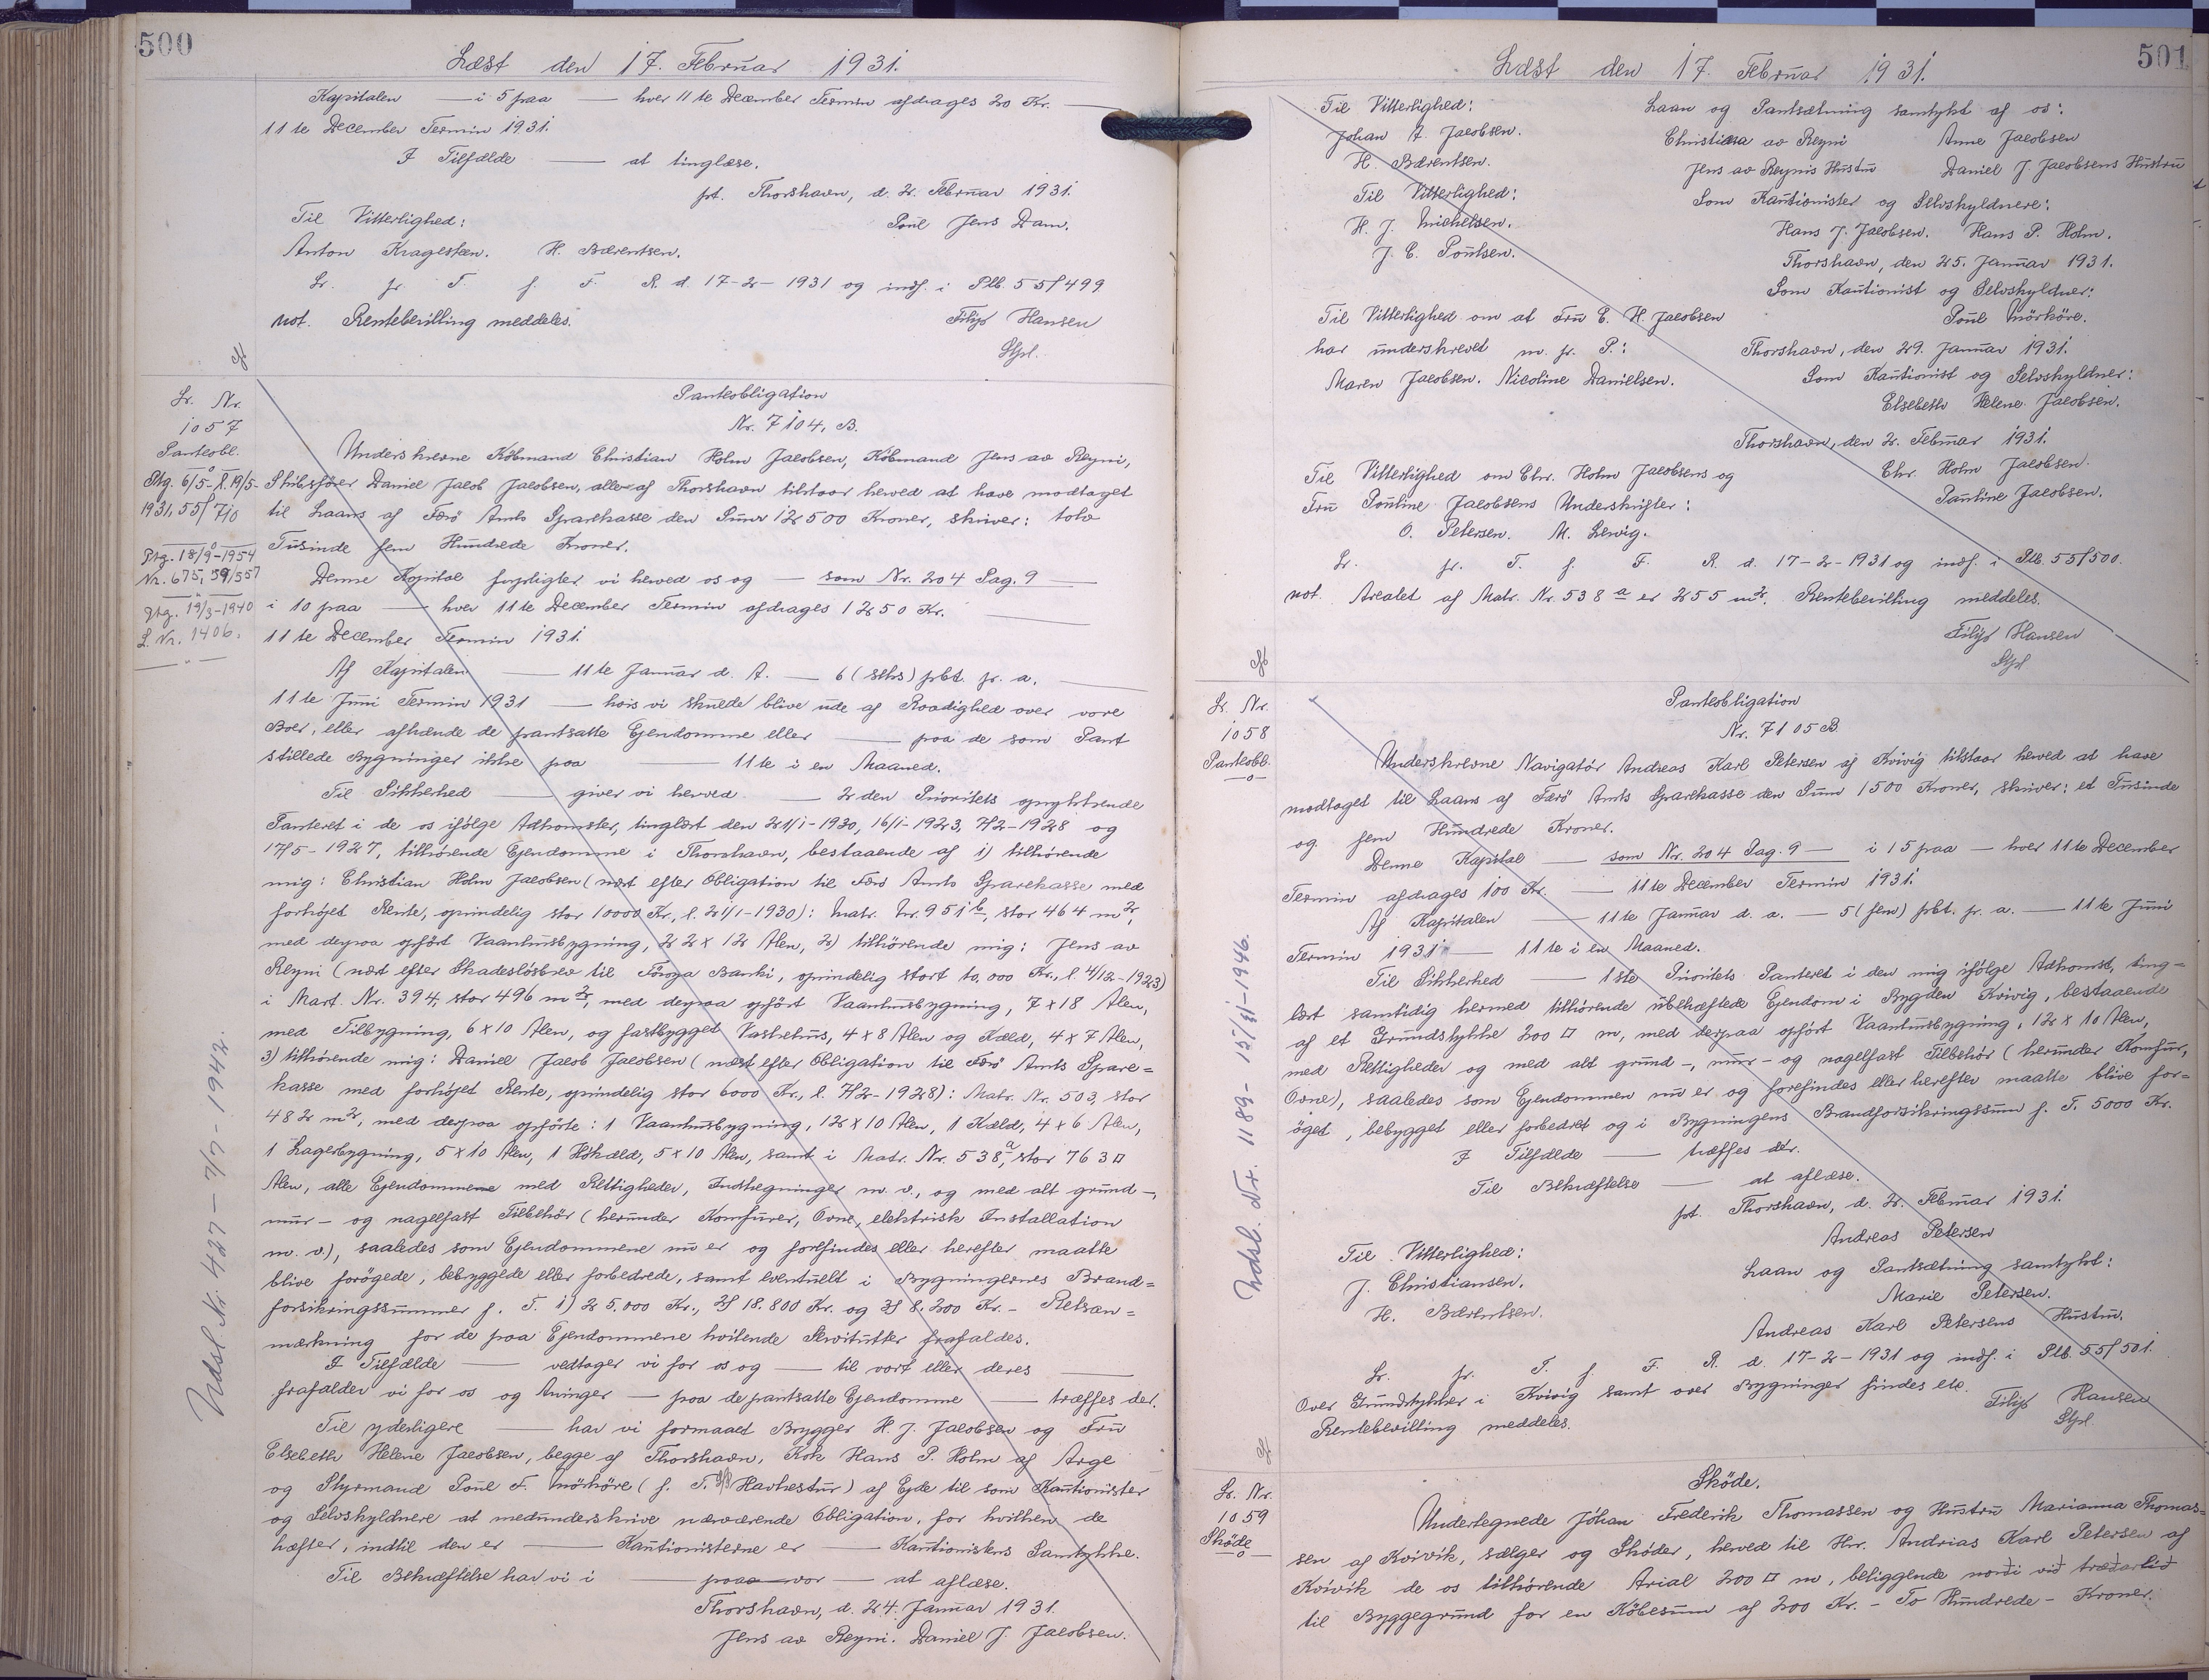 500
Læst den 17. Februar 1931.
Kapitalen — i 5 paa — hver 11te December Termin afdrages 20 Kr. —
11te December Termin 1931.
I Tilfælde — at tinglæse.
pt. Thorshavn, d. 2. Februar 1931.
Til Vitterlighed:
Poul Jens Dam.
Anton Kragesteen. H. Bærentsen.
Lr. fr. T. f. F. R. d. 17-2-1931 og indf. i Plb. 55/499
not. Rentebevilling meddeles.
Filip Hansen
Stpl.
Lr. Nr.
1057
Pantobl.
Ptg. 6/5-l. 19/5-
1931, 55/710
Ptg. 18/9-1954
Nr. 675, 59/557
Ptg. 19/3-1940
L. Nr. 1406.
Udsl. Nr. 427 - 7/7 - 1942.
Panteobligation
Nr. 7104. B.
Underskrevne Købmand Christian Holm Jacobsen, Købmand Jens av Reyni,
Skibsfører Daniel Jacob Jacobsen, alle af Thorshavn tilstaar herved at have modtaget
til Laans af Færø Amts Sparekasse den Sum 12500 Kroner, skriver: tolv
Tusinde fem Hundrede Kroner.
Denne Kapital forpligter vi herved os og — som Nr. 204 Pag. 9 —
i 10 paa — hver 11te December Termin afdrages 1250 Kr. —
11te December Termin 1931.
Af Kapitalen — 11te Januar d. A. — 6 (seks) pCt. p. a. —
11te Juni Termin 1931 — hvis vi skulde blive ude af Raadighed over vore
Boer, eller afhænde de pantsatte Ejendomme eller — paa de som Pant
stillede Bygninger ikke paa — 11te i en Maaned.
Til Sikkerhed — giver vi herved — 2den Prioritets oprykkende
Panteret i de os ifølge Adkomster, tinglæst den 21/1-1930, 16/1-1923, 7/2-1928 og
17/5-1927, tilhørende Ejendomme i Thorshavn, bestaaende af 1) tilhørende
mig: Christian Holm Jacobsen (næst efter Obligation til Færø Amts Sparekasse med
forhøjet Rente, oprindelig stor 10000 Kr., l. 21/1-1930): Matr. Nr. 951 b, stor 464 m2,
med derpaa opført Vaaningsbygning, 22 x 12 Alen, 2) tilhørende mig: Jens av
Reyni (næst efter Skadesløsbrev til Føroya Banki, oprindelig stort 10,000 Kr., l. 4/12-1923)
i Mart. Nr. 394, stor 496 m2, med derpaa opført Vaaningsbygning, 7 x 18 Alen,
med Tilbygning, 6 x 10 Alen, og fastbygget Vaskehus, 4 x 8 Alen og Kæld, 4 x 7 Alen,
3) tilhørende mig: Daniel Jacob Jacobsen (næst efter Obligation til Færø Amts Spare=
kasse med forhøjet Rente, oprindelig stor 6000 Kr., l. 7/2-1928): Matr. Nr. 503, stor
482 m2, med derpaa opførte: 1 Vaaningsbygning, 12 x 10 Alen, 1 Kæld, 4 x 6 Alen,
1 Lagerbygning, 5 x 10 Alen, 1 Høkæld, 5 x 10 Alen, samt i Matr. Nr. 538 a, stor 763 □
Alen, alle Ejendommene med Rettigheder, Indhegninger m. v., og med alt grund-,
mur- og nagelfast Tilbehør (herunder Komfurer, Ovne, elektrisk Installation
m. v.), saaledes som Ejendommene nu er og forefindes eller herefter maatte
blive forøgede, bebyggede eller forbedrede, samt eventuelt i Bygningernes Brand=
forsikringssummer f. T. 1) 25,000 Kr., 2) 18.800 Kr. og 3) 8.200 Kr. - Retsan=
mærkning for de paa Ejendommene hvilende Servitutter frafaldes.
I Tilfælde — vedtager vi for os og — til vort eller deres —
frafalder vi for os og Arvinger — paa de pantsatte Ejendomme — træffes der.
Til yderligere — har vi formaaet Brygger H. J. Jacobsen og Fru
Elsebeth Helene Jacobsen, begge af Thorshavn, Kok Hans P. Holm af Arge
og Styrmand Poul F. Mørkøre (f. T. S/S Havhestur) af Ejde til som Kautionister
og Selvskyldnere at medunderskrive nærværende Obligation, for hvilken de
hæfter, indtil den er — Kautionisterne er — Kautionistens Samtykke.
Til Bekræftelse har vi i — paa vor — at aflæse.
Thorshavn, d. 24. Januar 1931.
Jens av Reyni. Daniel J. Jacobsen.
501
Læst den 17. Februar 1931.
Til Vitterlighed:
Johan A. Jacobsen.
H. Bærentsen.
Til Vitterlighed:
H. J. Michelsen.
J. C. Poulsen.
Laan og Pantsætning samtykt af os:
Christiana av Reyni Anne Jacobsen
Jens av Reynis Hustru Daniel J. Jacobsens Hustru
Som Kautionister og Selvskyldnere:
Hans J. Jacobsen. Hans P. Holm.
Thorshavn, den 25. Januar 1931.
Som Kautionist og Selvskyldner:
Til Vitterlighed om at Fru E. H. Jacobsen
Poul Mörköre.
har underskrevet m. fr. P.:
Thorshavn, den 29. Januar 1931.
Maren Jacobsen. Nicoline Danielsen.
Som Kautionist og Selvskyldner:
Elsebeth Helene Jacobsen.
Thorshavn, den 2. Februar 1931.
Til Vitterlighed om Chr. Holm Jacobsens og
Chr. Holm Jacobsen.
Fru Pouline Jacobsens Underskrifter:
Pauline Jacobsen.
O. Petersen. M. Lervig.
Lr. fr. T. f. F. R. d. 17-2-1931 og indf. i Plb. 55/500.
not. Arealet af Matr. Nr. 538 a er 255 m2. Rentebevilling meddeles.
Filip Hansen
Stpl
Lr. Nr.
1058
Panteobl.
Udsl. Nr. 1189 - 15/11-1946.
Panteobligation
Nr. 7105 B.
Underskrevne Navigatør Andreas Karl Petersen af Kvivig tilstaar herved at have
modtaget til Laans af Færø Amts Sparekasse den Sum 1500 Kroner, skriver: et Tusinde
og fem Hundrede Kroner.
Denne Kapital — som Nr. 204 Pag. 9 — i 15 paa — hver 11te December
Termin afdrages 100 Kr. — 11te December Termin 1931.
Af Kapitalen — 11te Januar d. a. — 5 (fem) pCt. p. a. — 11te Juni
Termin 1931 — 11te i en Maaned.
Til Sikkerhed — 1ste Prioritets Panteret i den mig ifølge Adkomst, ting=
læst samtidig hermed tilhørende ubehæftede Ejendom i Bygden Kvivig, bestaaende
af et Grundstykke 200 □ m, med derpaa opført Vaaningsbygning, 12 x 10 Alen,
med Rettigheder og med alt grund-, mur- og nagelfast Tilbehør (herunder Komfur,
Ovne), saaledes som Ejendommen nu er og forefindes eller herefter maatte blive for=
øget, bebygget eller forbedret og i Bygningens Brandforsikringssum f. T. 5000 Kr.
I Tilfælde — træffes der.
Til Bekræftelse — at aflæse.
pt. Thorshavn, d. 2. Februar 1931.
Andreas Petersen
Til Vitterlighed:
Laan og Pantsætning samtykt:
J. Christiansen.
Marie Petersen.
H. Bærentsen.
Andreas Karl Petersens Hustru.
Lr. fr. T. f. F. R. d. 17-2-1931 og indf. i Plb. 55/501.
Over Grundstykker i Kvivig samt over Bygninger findes etc.
Rentebevilling meddeles.
Filip Hansen
Stpl.
Lr. Nr.
1059
Skøde
Skøde.
Undertegnede Jóhan Frederik Thomassen og Hustru Marianna Thomas=
sen af Kvívík, sælger og Skøder, herved til Hr. Andrias Karl Petersen af
Kvívík de os tilhørende Arial 200 □ m, beliggende norði við
til Byggegrund for en Købesum af 200 Kr. - To Hundrede - Kroner.